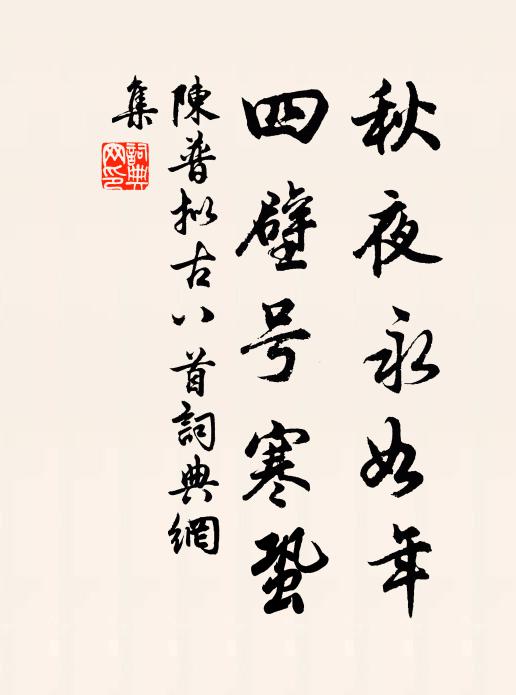 秋夜永如年
四壁号寒蛩
陳普拟古八首詞典網
集
詞典网印